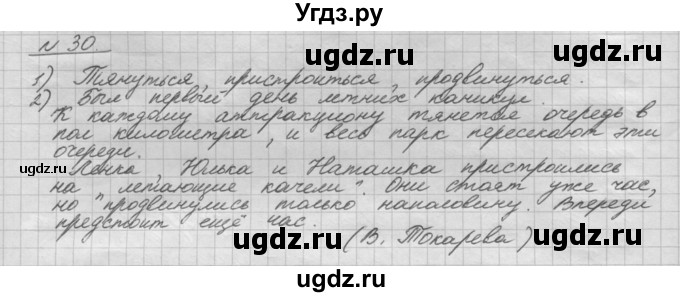 Угдз.ру
№ 30.
1) Тянуться, пристроиться, продвинуться.
2) Был первый день летних каникул.
К каждому аттракциону тянется очередь в
пол километра, и весь парк пересекают эти
очереди.
Ленка, Юлька и Наташка пристроились
на „летающие качели". Они стоят уже час,
но продвинулись только наполовину. Впереди
предстоит ещё час.
(В. Токарева)
ugdz.ru
ugdz.ru
ugdz.ru
ugdz.ru
ugdz.ru
ugdz.ru
ugdz.ru
ugdz.ru